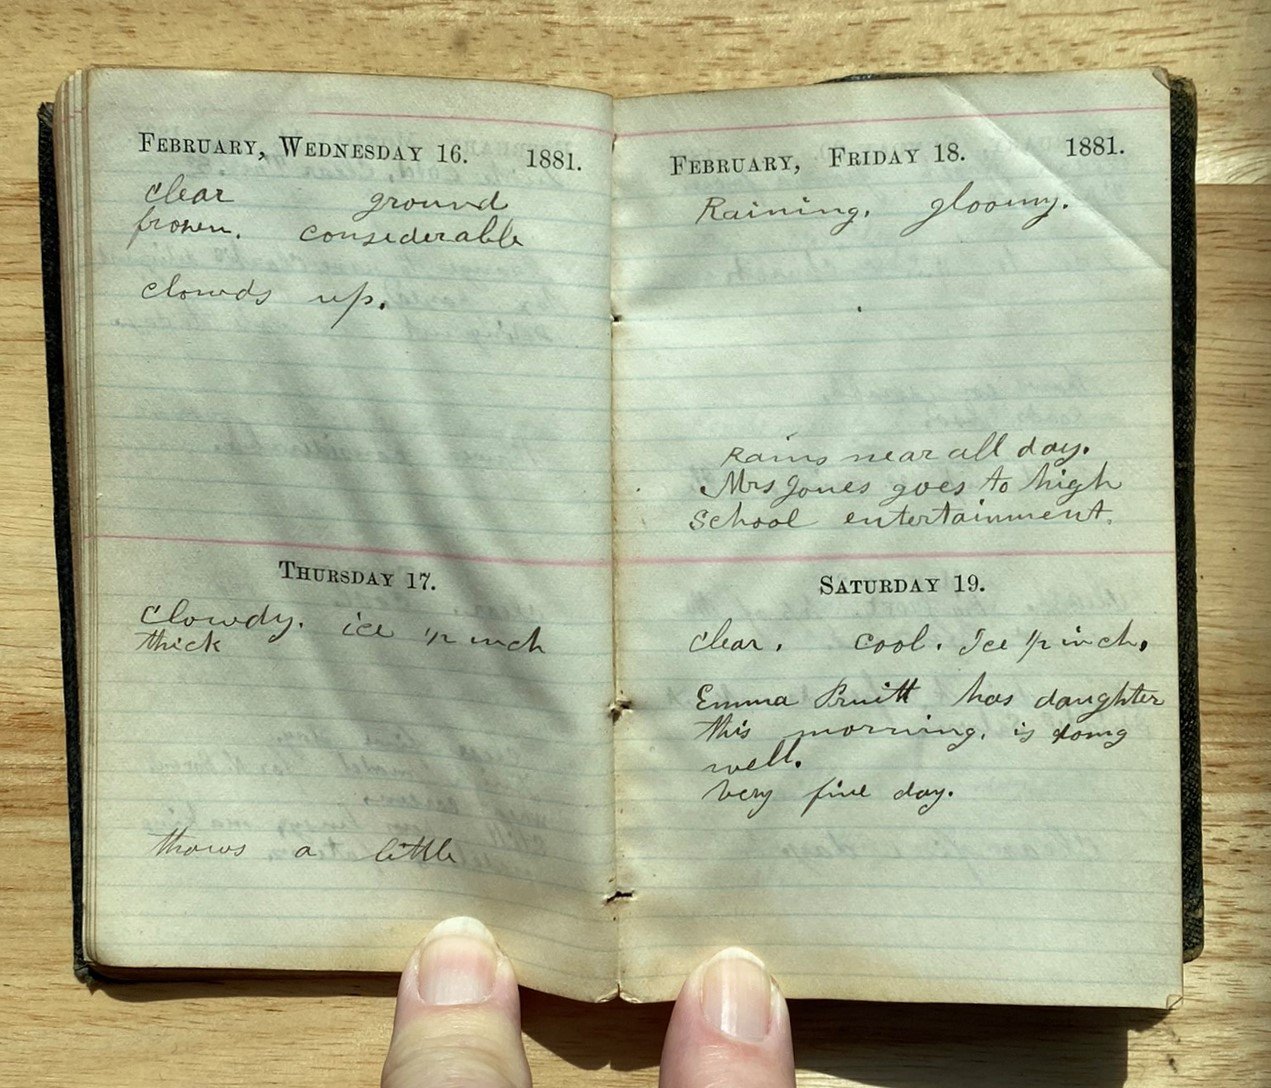 February, Wednesday 16. 1881.
clear ground
frozen. considerable
clowds up.
Thursday 17.
Clowdy. ice 1/2 inch
thick
thows a little
February, Friday 18. 1881.
Raining. gloomy.
Rains near all day.
Mrs Jones goes to high
School entertainment.
Saturday 19.
Clear. cool. Ice 1/2 inch.
Emma Pruitt has daughter
this morning. is doing
well.
Very fine day.